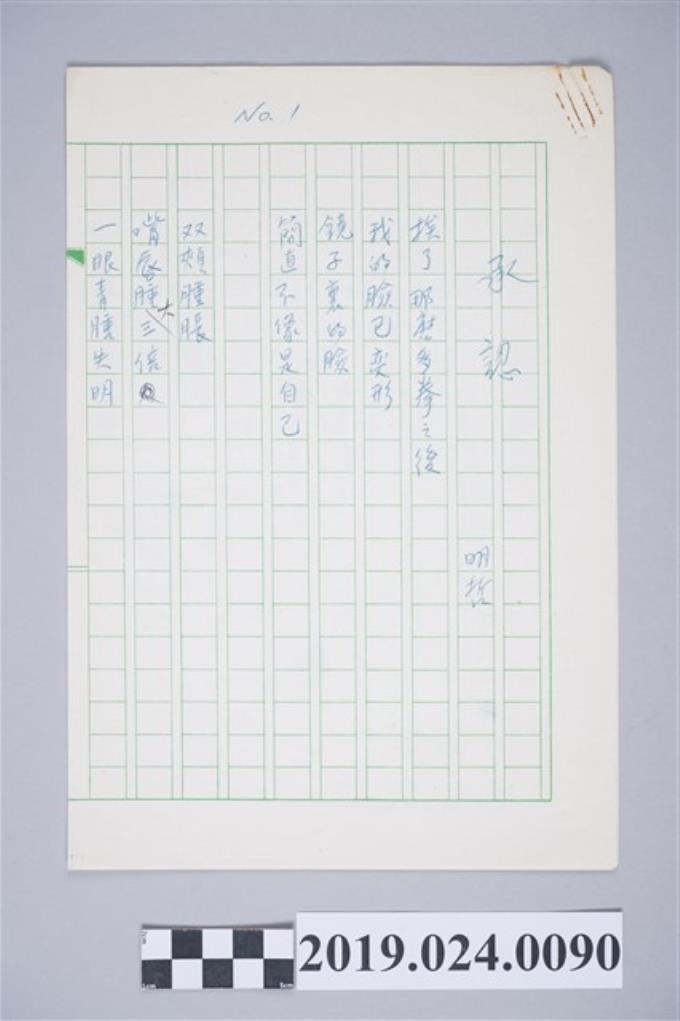 No. 1
承認
明哲
挨了那麼多拳之後
我的臉已変形
鏡子裏的臉
簡直不像是自己
双頰腫脹
嘴唇腫大三倍
一眼青腫失明
2019.024.0090